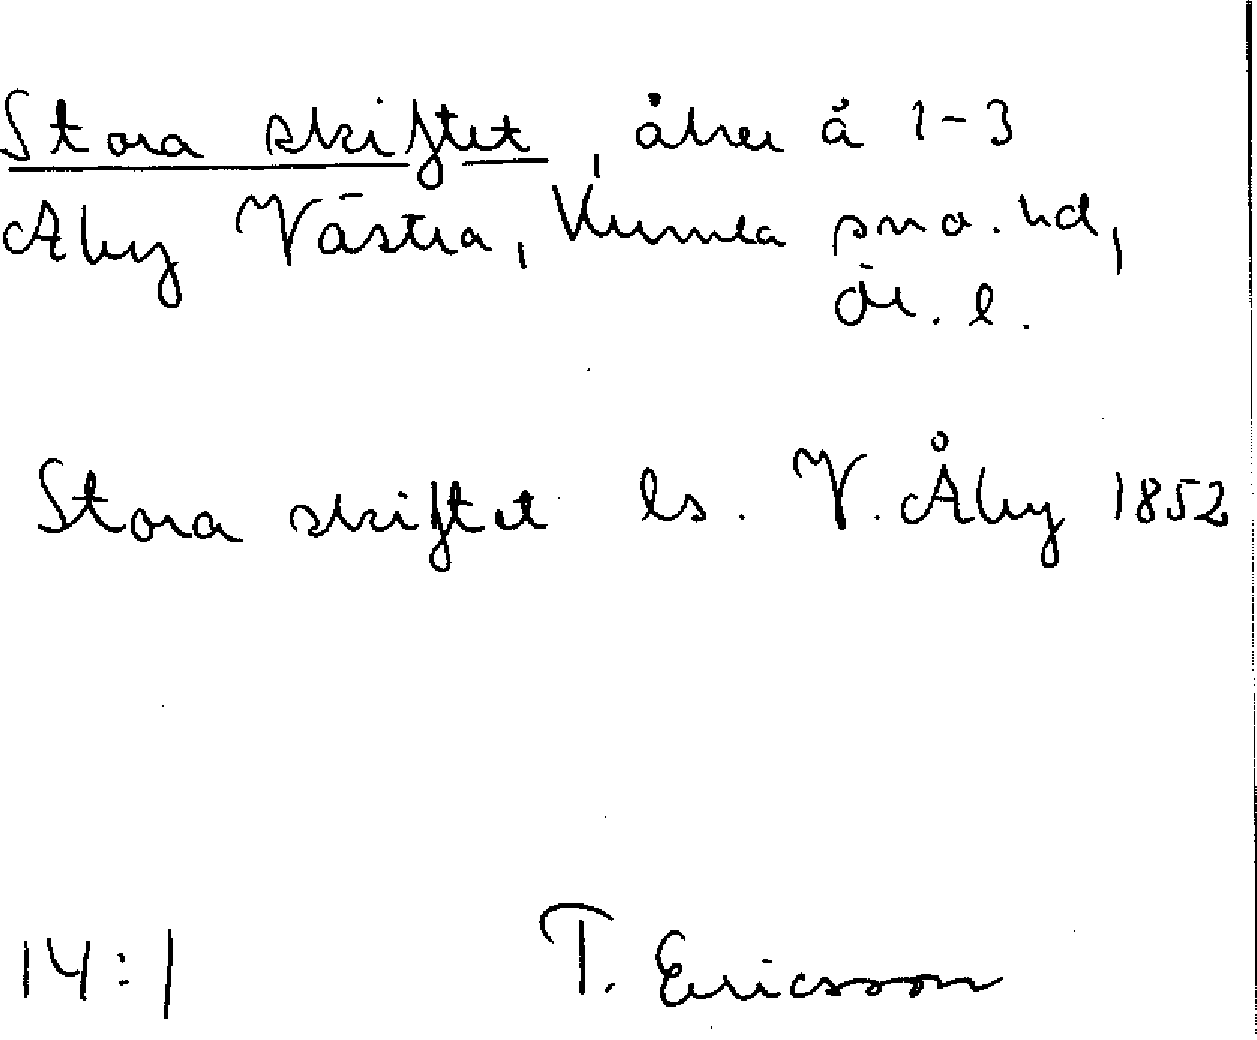 Stora skiftet, åker å 1-3
Åby Västra, Kumla sn o. hd,
Ör. l.
Stora skiftet ls. V. Åby 1852
14:1 T. Ericsson